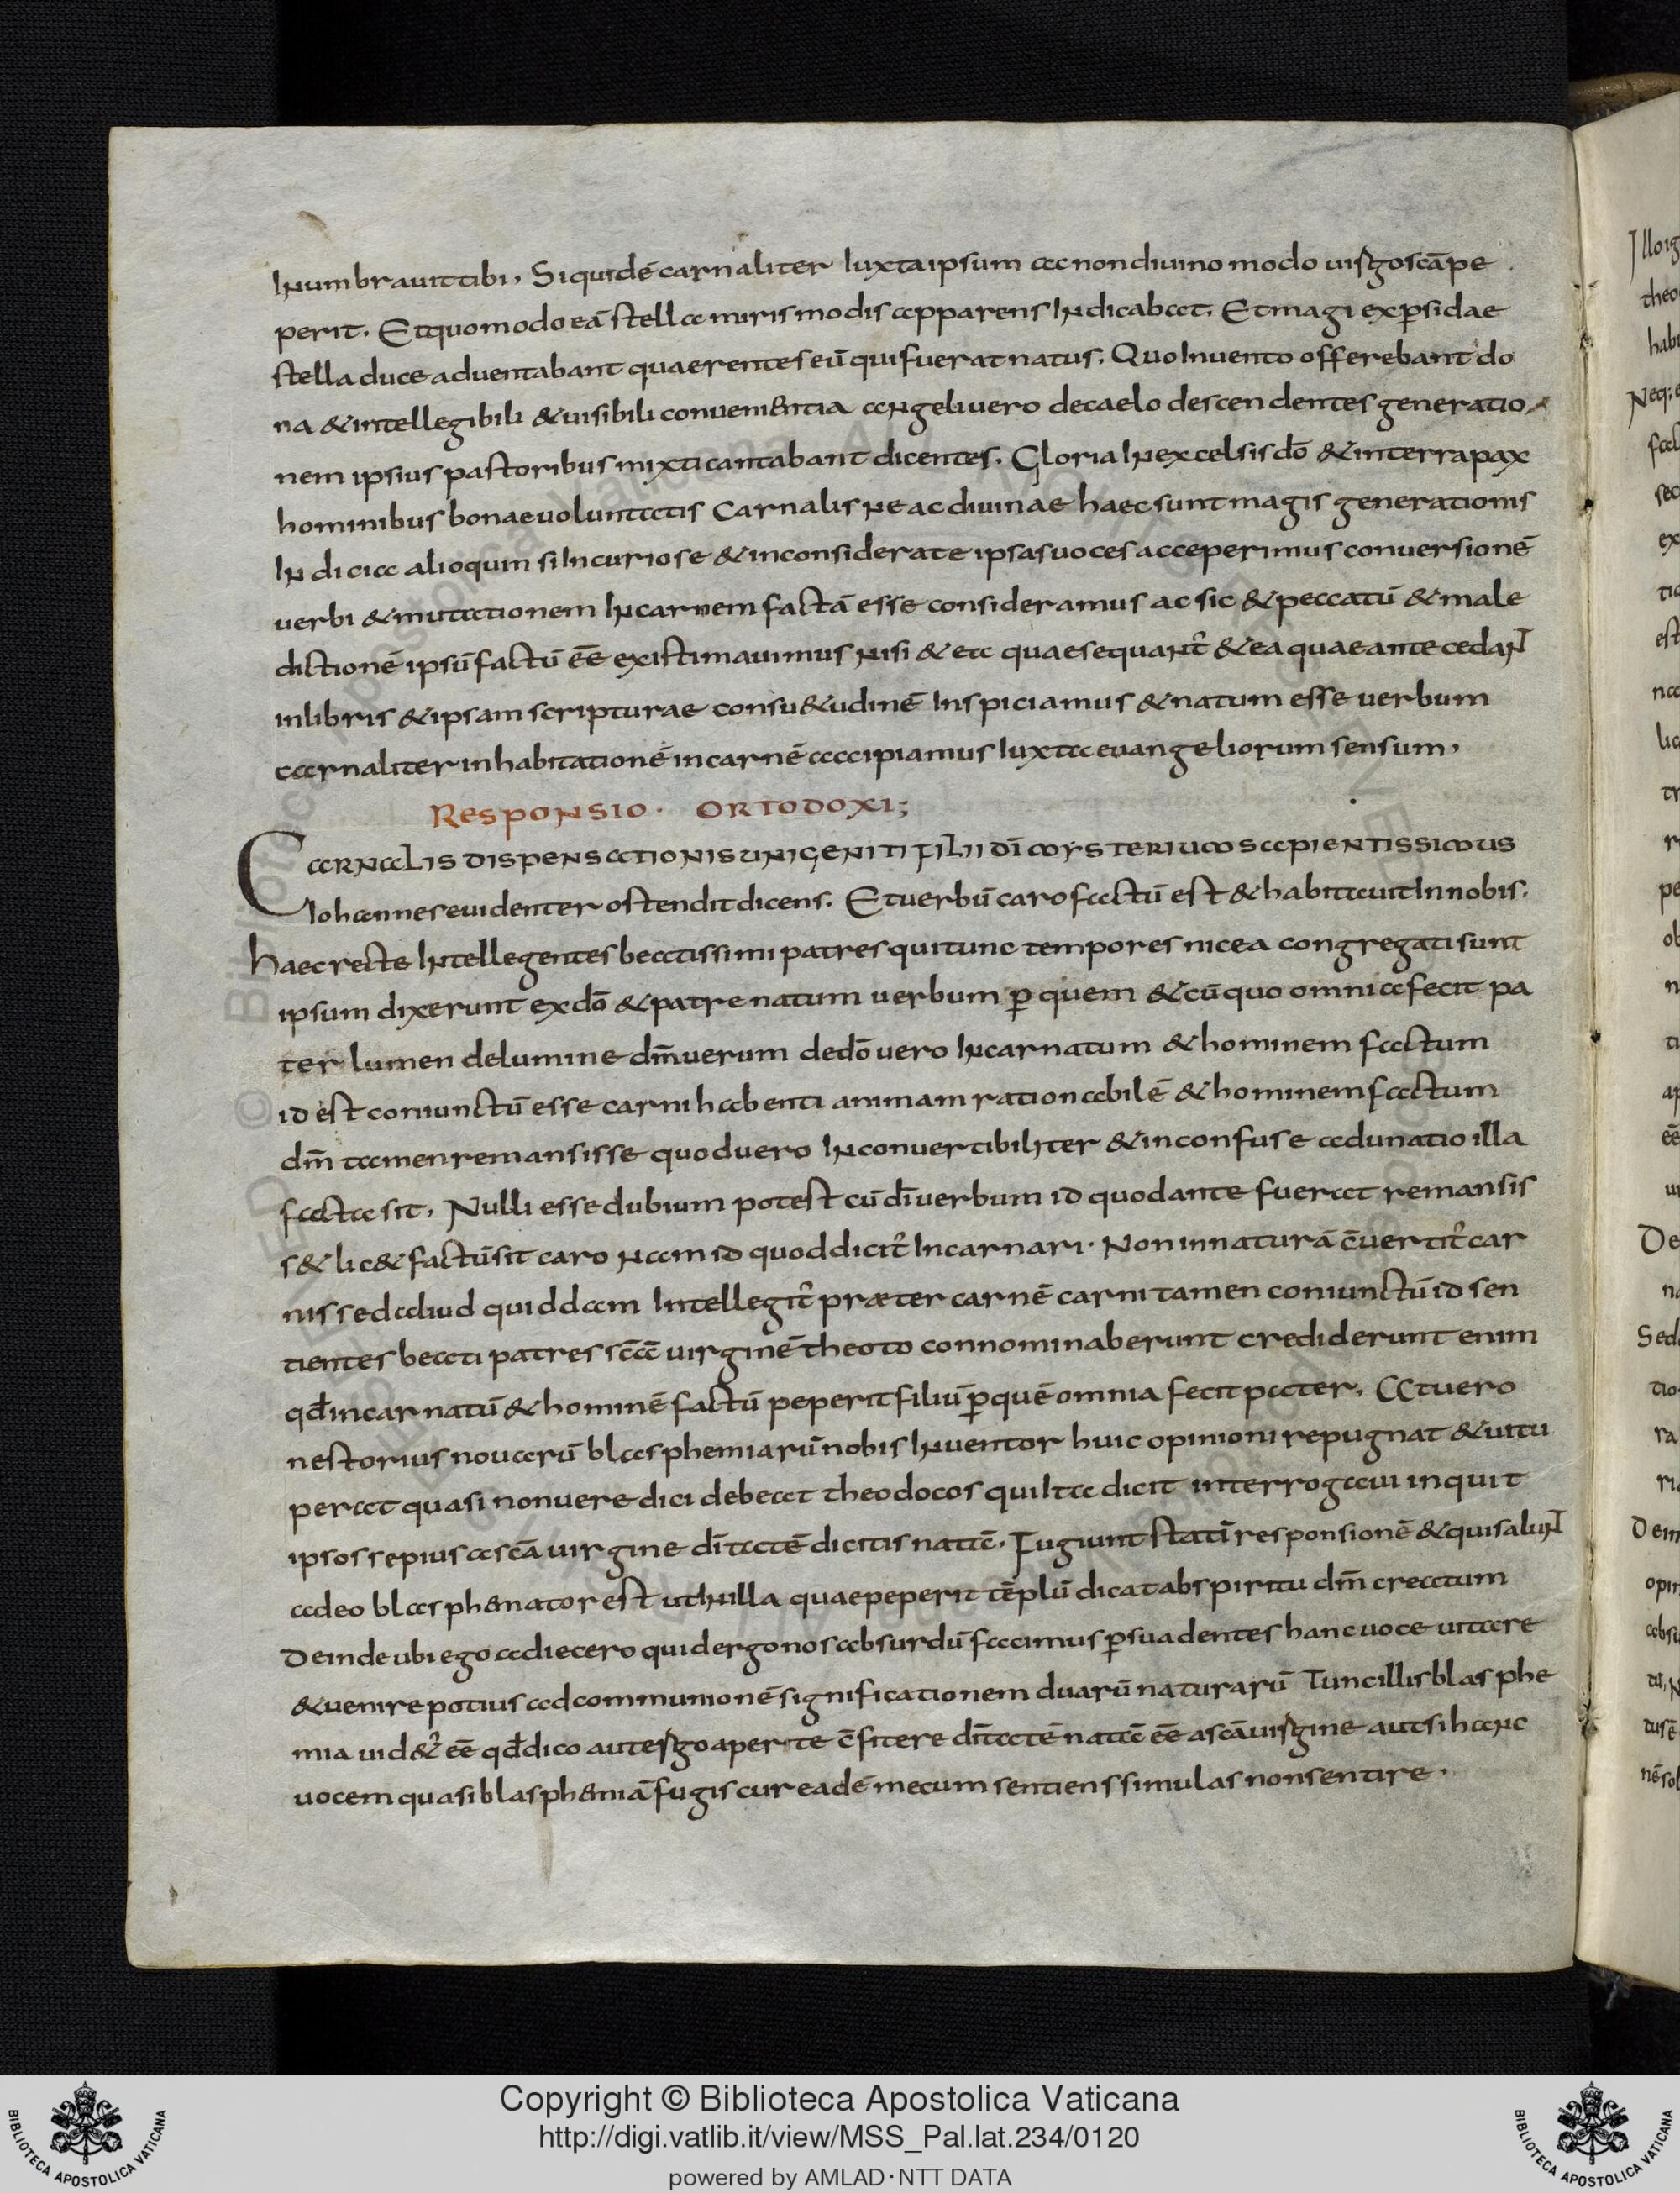 Inumbrauit tibi, Siquidé carnaliter Iuxta ipsum ac non diuino modo uirgo scā pe
perit. Et quomodo eā stella miris modis apparens Indicabat. Et magi ex psidae
stella duce aduentabant quaerentes eū qui fuerat natus. Quo Inuento offerebant do
na & intellegibili & uisibili conuenientia angeli uero de caelo descendentes generatio
nem ipsius pastoribus mixti cantabant dicentes. Gloria In excelsis dō & in terra pax
hominibus bonae uoluntatis Carnalis ne ac diuinae haec sunt magis generationis
Indicia alioquin si Incuriose & inconsiderate ipsas uoces acceperimus conuersionē
uerbi & mutationem In carnem factā esse consideramus ac sic & peccatū & male
dictionē ipsū factū eē existimauimus nisi & ea quae sequant̄ & ea quae antecedant
in libris & ipsam scripturae consu&udinē Inspiciamus & natum esse uerbum
carnaliter inhabitationē in carnē accipiamus Iuxta euangeliorum sensum,
Responsio. ORTODOXI;
Carnalis dispensationis unigeniti filii dī mysterium sapientissimus
Iohannes euidenter ostendit dicens. Et uerbū caro factū est & habitauit In nobis.
haec recte Intellegentes beatissimi patres qui tunc tempores nicea congregati sunt
ipsum dixerunt ex dō & patre natum uerbum p̄ quem & cū quo omnia fecit pa
ter lumen de lumine dm̄ uerum de dō uero Incarnatum & hominem factum
id est coniunctū esse carni habenti animam rationabilē & hominem factum
dm̄ tamen remansisse quod uero Inconuertibiliter & inconfuse adunatio illa
facta sit, Nulli esse dubium potest cū dī uerbum id quod ante fuerat remansis
s& lic& factū sit caro nam id quod dicit̄ Incarnari. Non in naturā c̄uertit̄ car
nis sed aliud quiddam Intellegit̄ præter carnē carni tamen coniunctū id sen
tientes beati patres scā uirginē theotocon nominaberunt crediderunt enim
qđ incarnatū & hominē factū peperit filiū p̄ quē omnia fecit pater. At uero
nestorius nouarū blasphemiarū nobis Inuentor huic opinioni repugnat & uitu
perat quasi non uere dici debeat theodocos qui Ita dicit interrogaui inquit
ipsos sepius a scā uirgine dītatē dicitis natā. Fugiunt statī responsionē & quis alunt
adeo blasphemator est ut In illa quae peperit tēplū dicat ab spiritu dm̄ creatum
Deinde ubi ego adiecero quid ergo nos absurdū facimus p̄suadentes hanc uoce uitare
& uenire potius ad communionē significationem duarū naturarū Tunc illis blasphe
mia uid&̄ eē qđ dico aut ergo aperte c̄fitere dītatē natā eē a scā uirgine aut si hanc
uocem quasi blasphemiā fugis cur eadē mecum sentiens simulas non sentire.
Copyright © Biblioteca Apostolica Vaticana
http://digi.vatlib.it/view/MSS_Pal.lat.234/0120
powered by AMLAD · NTT DATA
BIBLIOTECA APOSTOLICA VATICANA
BIBLIOTECA APOSTOLICA VATICANA